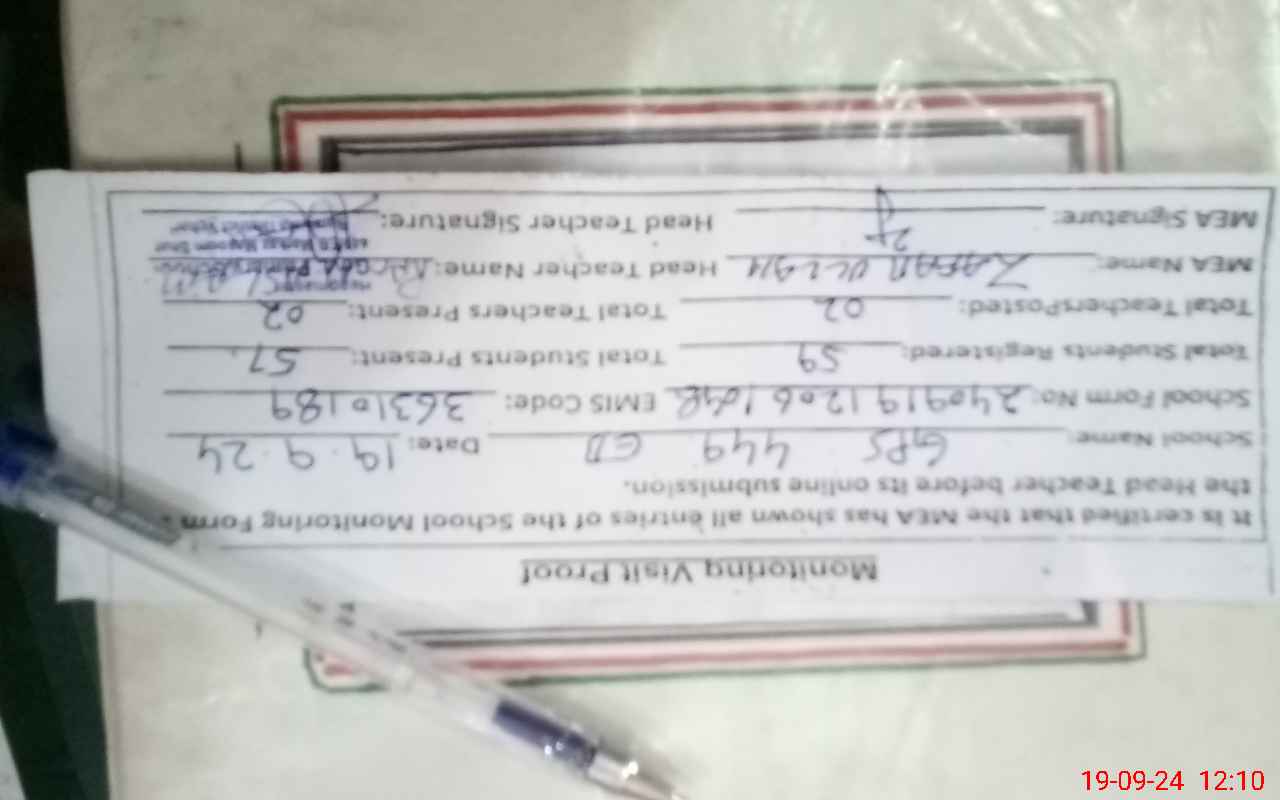 Monitoring Visit Proof
It is certified that the MEA has shown all entries of the School Monitoring Form
the Head Teacher before its online submission.
School Name: GPS 449 ED Date: 19.9.24
School Form No: EMIS Code: 36310189
Total Students Registered: 59 Total Students Present: 57
Total TeachersPosted: 02 Total Teachers Present: 02
MEA Name: ZAFAR ULLAH Head Teacher Name:
MEA Signature: Head Teacher Signature:
19-09-24 12:10